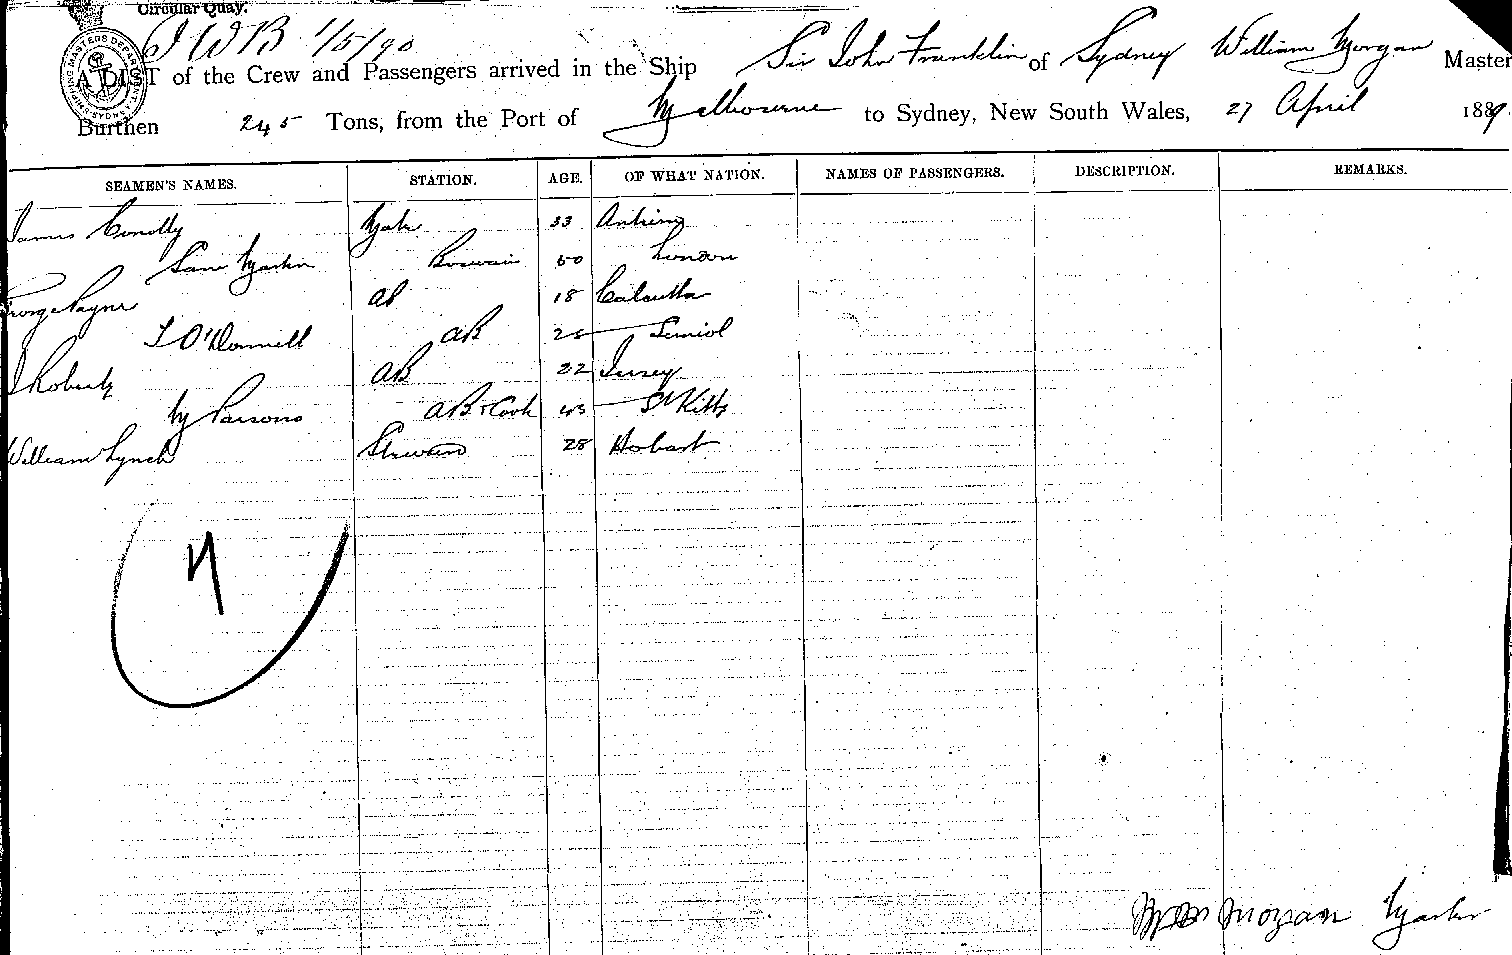 Circular Quay.
J W B 1/5/90
A LIST of the Crew and Passengers arrived in the Ship Sir John Franklin of Sydney William Morgan Master
Burthen 245 Tons, from the Port of Melbourne to Sydney, New South Wales, 27 April 1889
SEAMEN'S NAMES. STATION. AGE. OF WHAT NATION. NAMES OF PASSENGERS. DESCRIPTION. REMARKS.
James Conolly Mate 33 Antrim
Sam Martin Boswain 50 London
George Payne AB 18 Calcutta
J O'Donnell AB
J Roberts AB 22 Jersey
Hy Parsons AB & Cook 43 St Kitts
William Lynch Steward 28 Hobart
Wm Morgan Master